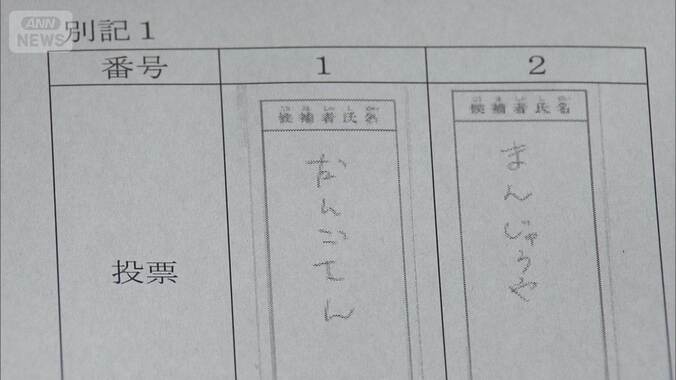 ANN NEWS
別記1
番号
1
2
投票
候補者氏名
候補者氏名
まんじゅうや